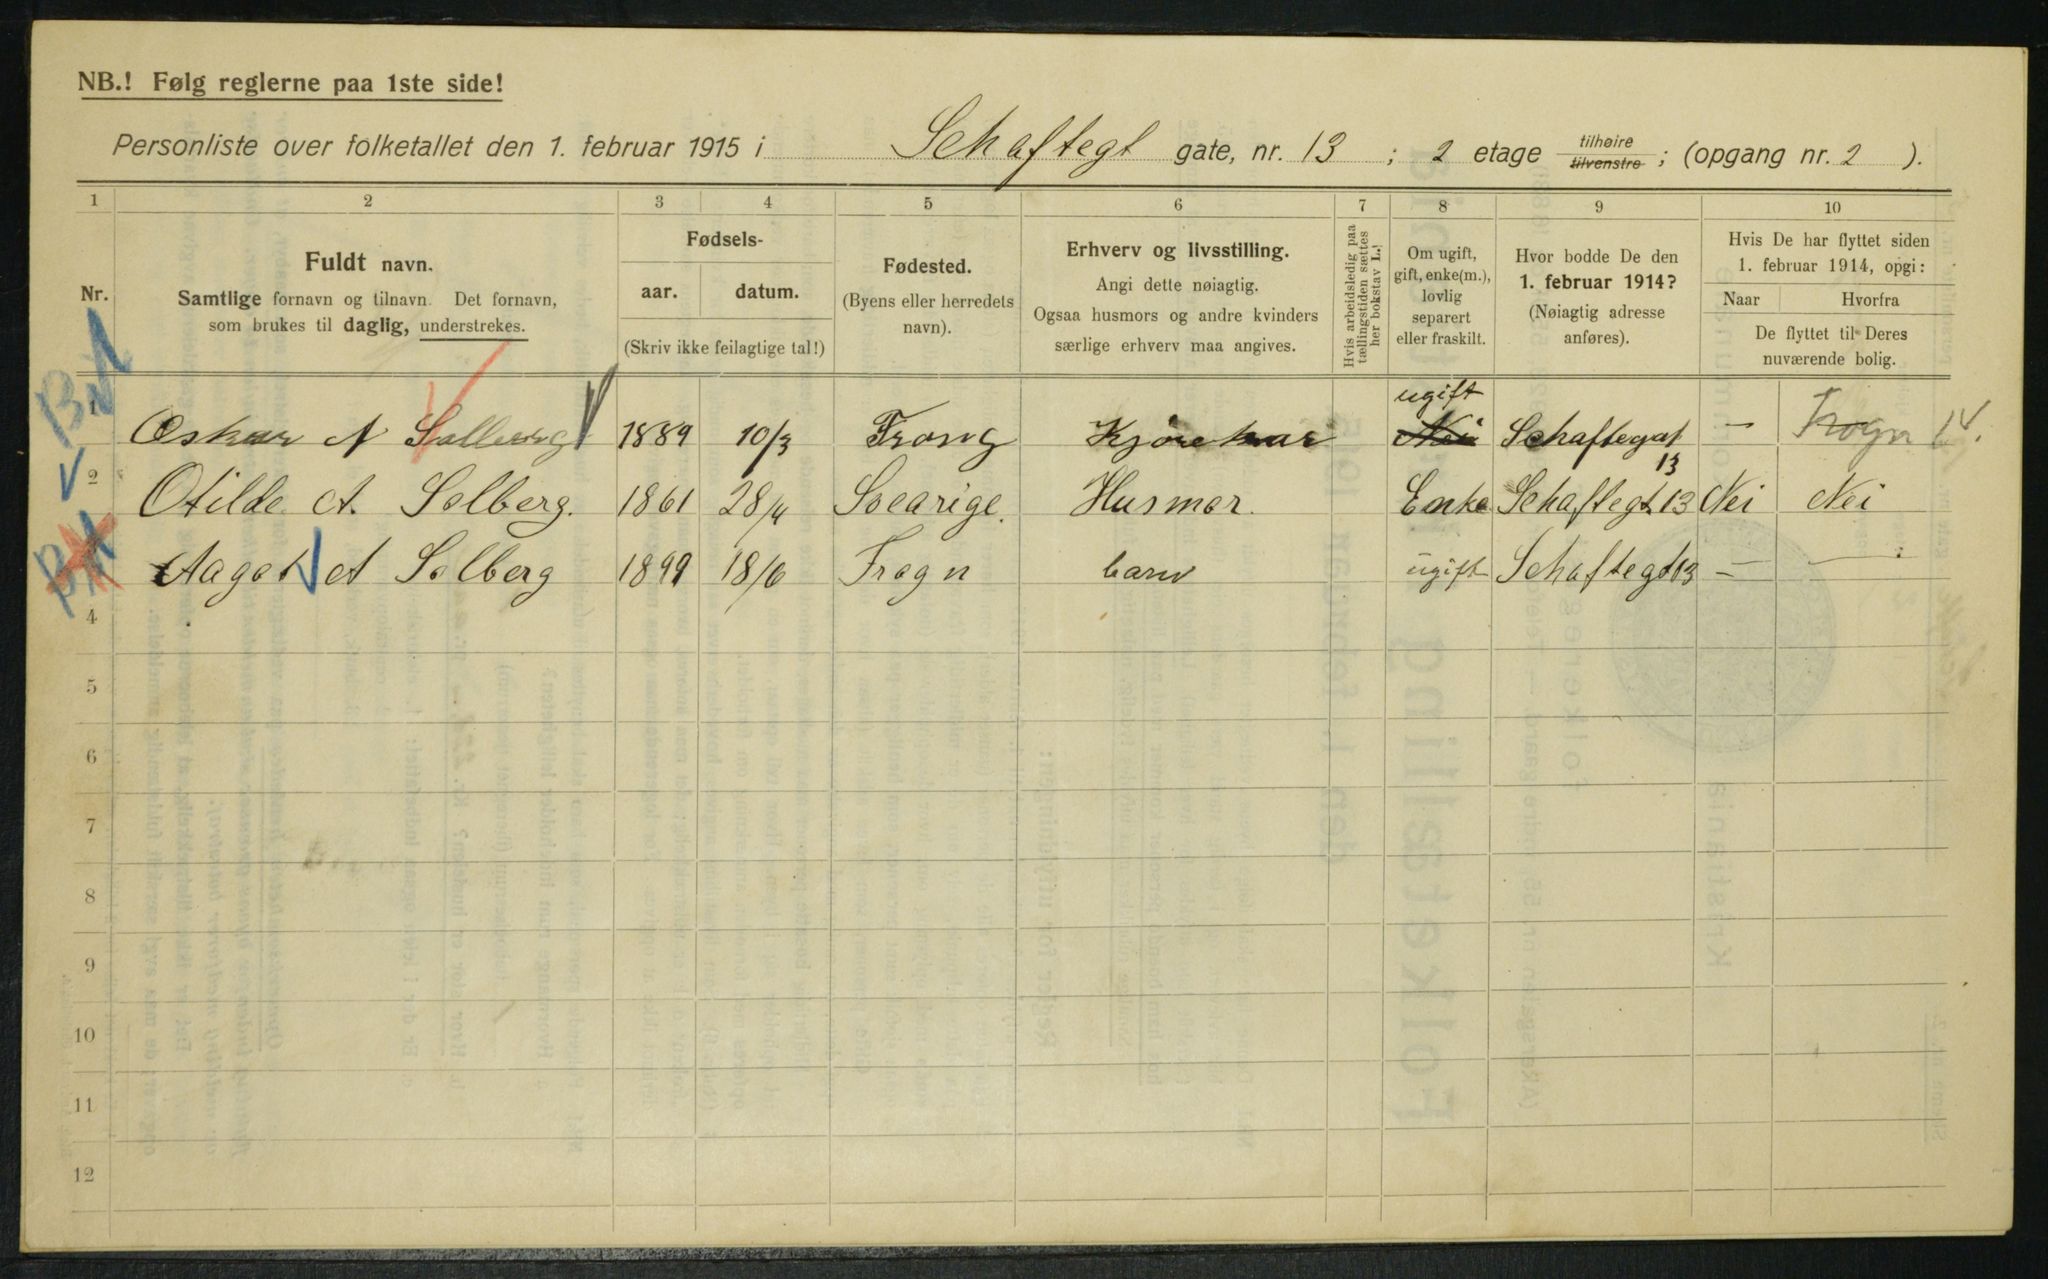 NB.! Følg reglerne paa 1ste side!
Personliste over folketallet den 1. februar 1915 i Schaftegt gate, nr. 13 ; 2 etage tilhøire tilvenstre ; (opgang nr. 2 ).
1 2 3 4 5 6 7 8 9 10
Nr.
Fuldt navn.
Samtlige fornavn og tilnavn. Det fornavn,
som brukes til daglig, understrekes.
Fødsels-
aar. datum.
(Skriv ikke feilagtige tal!)
Fødested.
(Byens eller herredets
navn).
Erhverv og livsstilling.
Angi dette nøiagtig.
Ogsaa husmors og andre kvinders
særlige erhverv maa angives.
Hvis arbeidsledig paa
tællingstiden sættes
her bokstav L.!
Om ugift,
gift, enke(m.),
lovlig
separert
eller fraskilt.
Hvor bodde De den
1. februar 1914?
(Nøiagtig adresse
anføres).
Hvis De har flyttet siden
1. februar 1914, opgi:
Naar Hvorfra
De flyttet til Deres
nuværende bolig.
ugift
1 Oskar A Sollberg 1889 10/3 Frong Kjørekar Nei Schaftegat — Frogn
13
2 Otilde A. Solberg. 1861 28/4 Svearige. Husmor. Enke Schaftegt. 13 Nei Nei
Aagot A Solberg 1899 18/6 Frogn barn ugift Schaftegt 13 — —
4
5
6
7
8
9
10
11
12